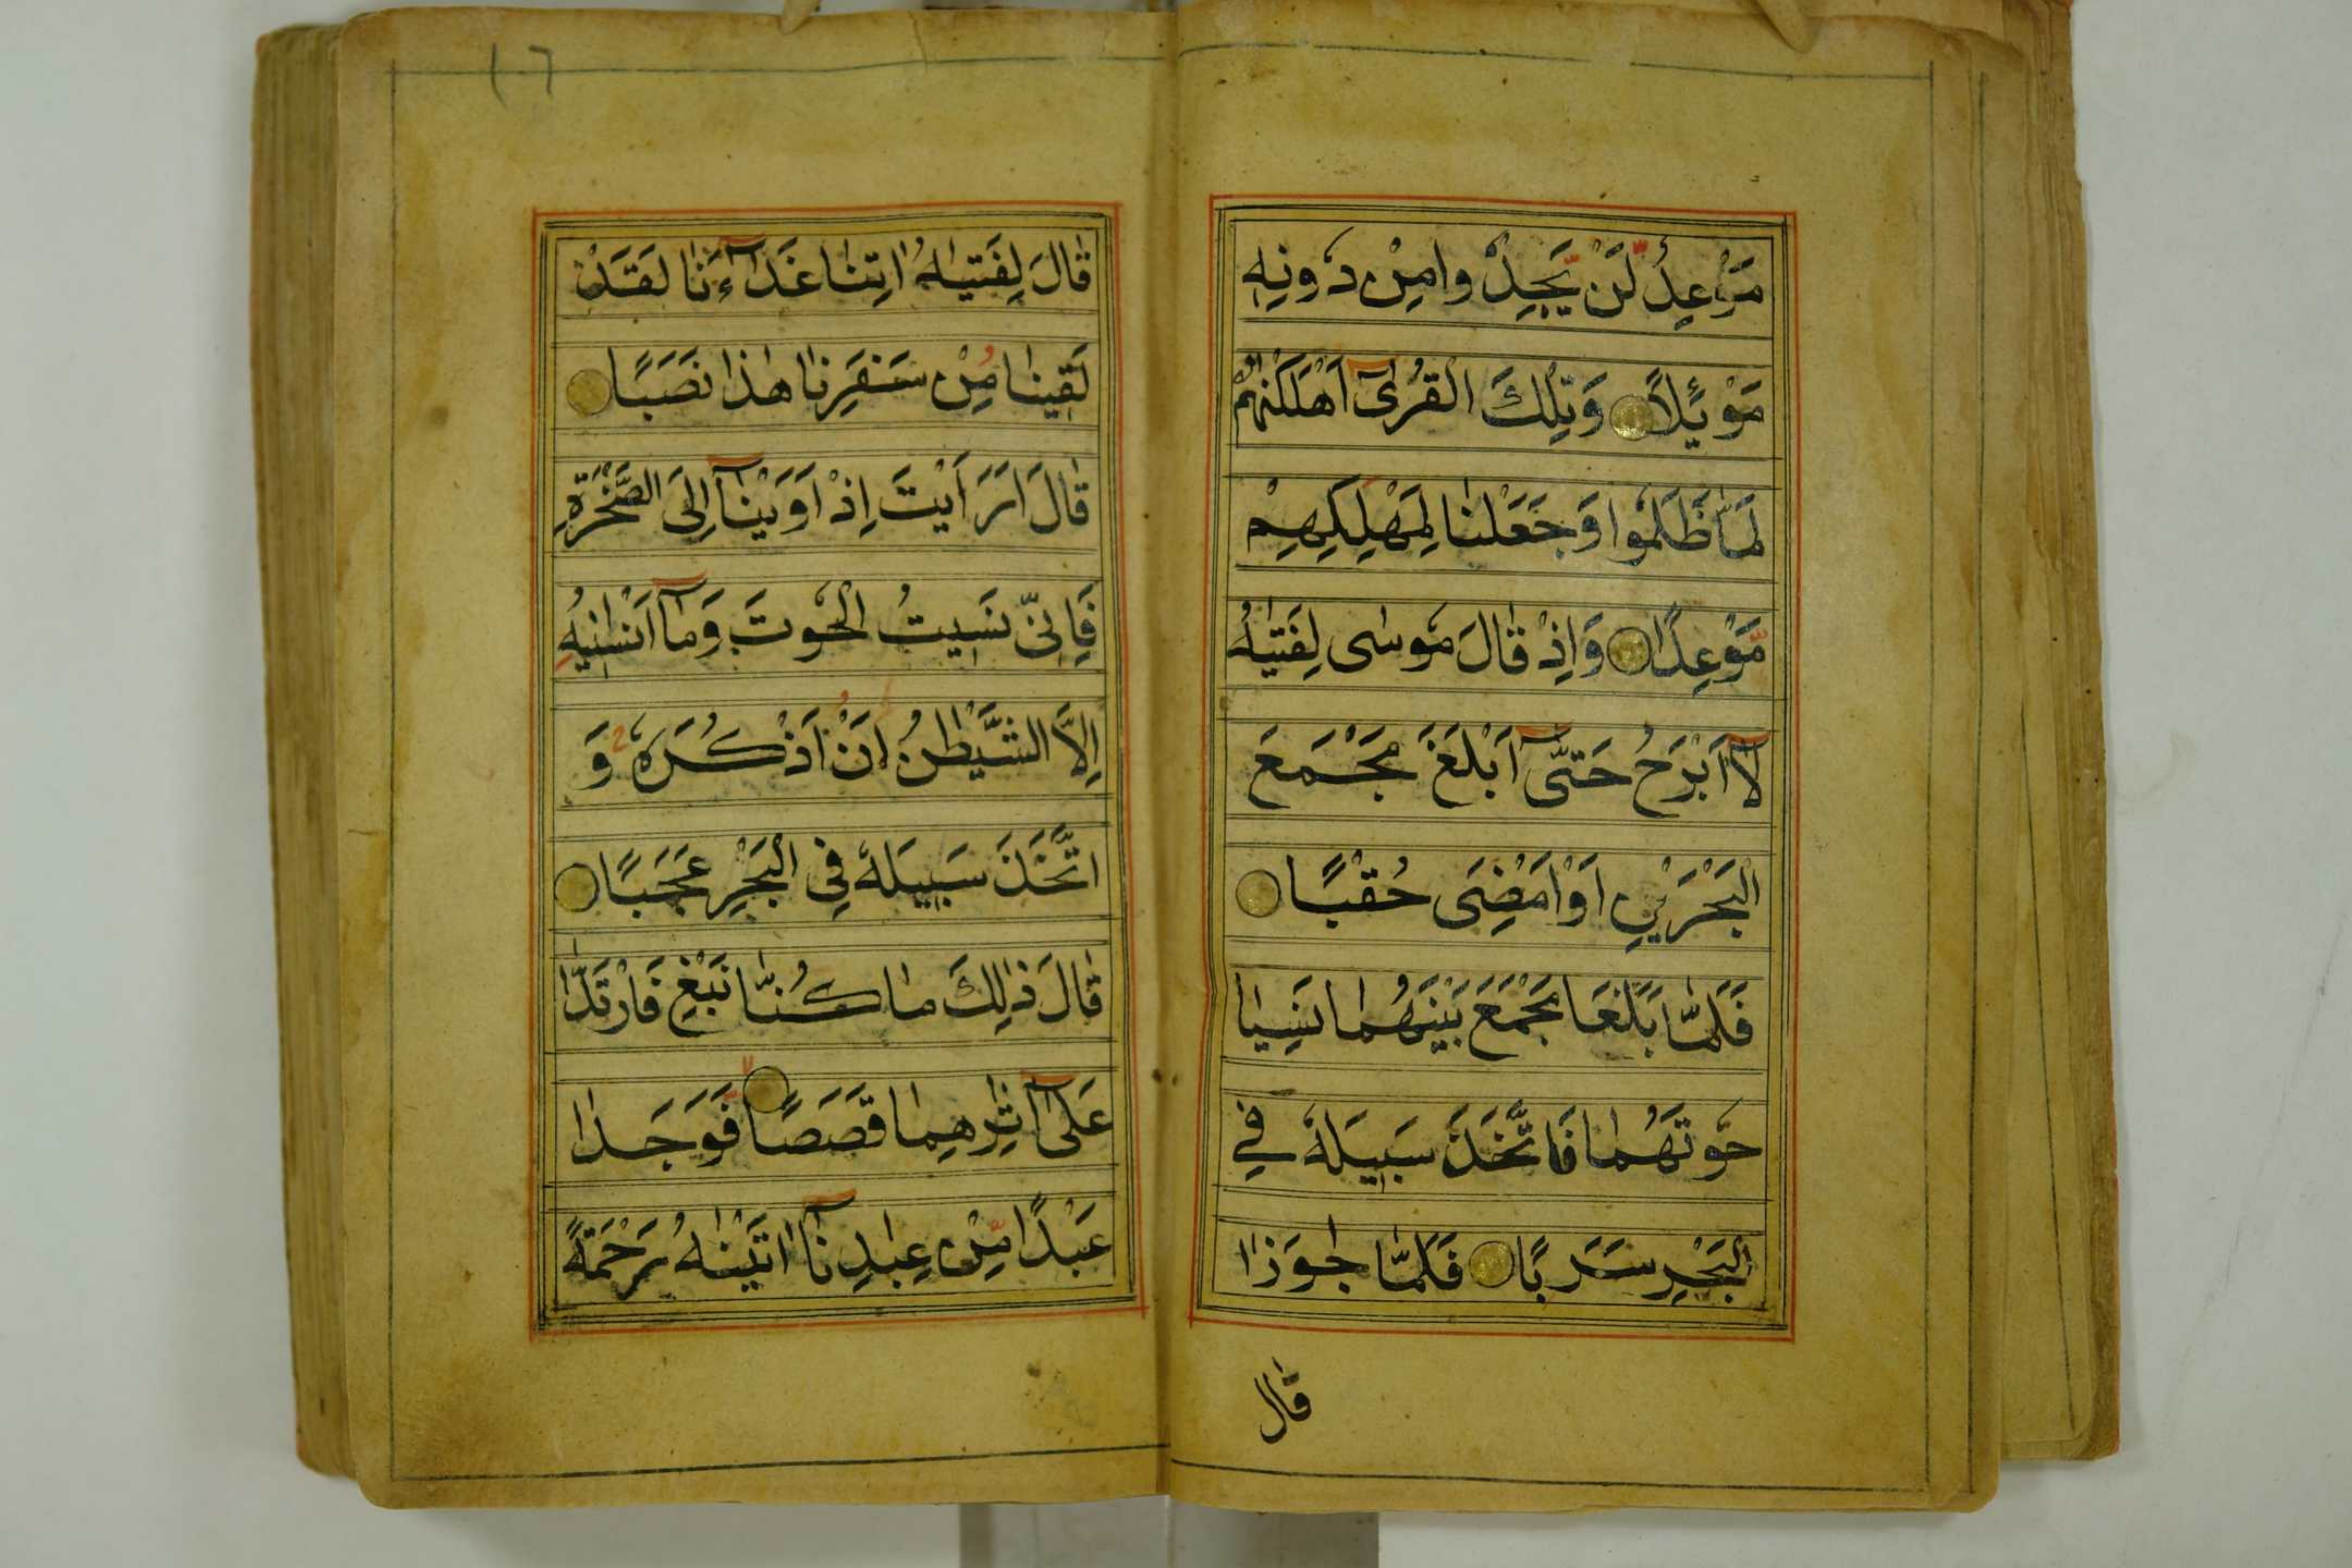 مَوْعِدٌ لَّنْ يَّجِدُوا مِنْ دُونِهٖ
مَوْئِلًا وَتِلْكَ الْقُرٰٓى اَهْلَكْنٰهُمْ
لَمَّا ظَلَمُوا وَجَعَلْنٰا لِمَهْلِكِهِمْ
مَّوْعِدًا وَاِذْ قٰالَ مُوسٰى لِفَتٰيهُ
لٰٓا اَبْرَحُ حَتّٰٓى اَبْلُغَ مَجْمَعَ
الْبَحْرَيْنِ اَوْ اَمْضِىَ حُقُبًا
فَلَمّٰا بَلَغَا مَجْمَعَ بَيْنِهِمٰا نَسِيٰا
حُوتَهُمٰا فَاتَّخَذَ سَبِيلَهُ فِي
الْبَحْرِ سَرَبًا فَلَمّٰا جٰوَزٰا
قٰالَ
١٦
قٰالَ لِفَتٰيهُ اٰتِنٰا غَدٰٓاءَنٰا لَقَدْ
لَقِينٰا مِنْ سَفَرِنٰا هٰذٰا نَصَبًا
قٰالَ اَرَاَيْتَ اِذْ اَوَيْنٰٓا اِلَى الصَّخْرَةِ
فَاِنّى نَسِيتُ الْحُوتَ وَمٰٓا اَنْسٰنِيهُ
اِلَّا الشَّيْطٰنُ اَنْ اَذْكُرَهُ وَ
اتَّخَذَ سَبِيلَهُ فِى الْبَحْرِ عَجَبًا
قٰالَ ذٰلِكَ مٰا كُنّٰا نَبْغِ فَارْتَدّٰا
عَلٰٓى اٰثٰرِهِمٰا قَصَصًا فَوَجَدٰا
عَبْدًا مِّنْ عِبٰادِنٰٓا اٰتَيْنٰهُ رَحْمَةً